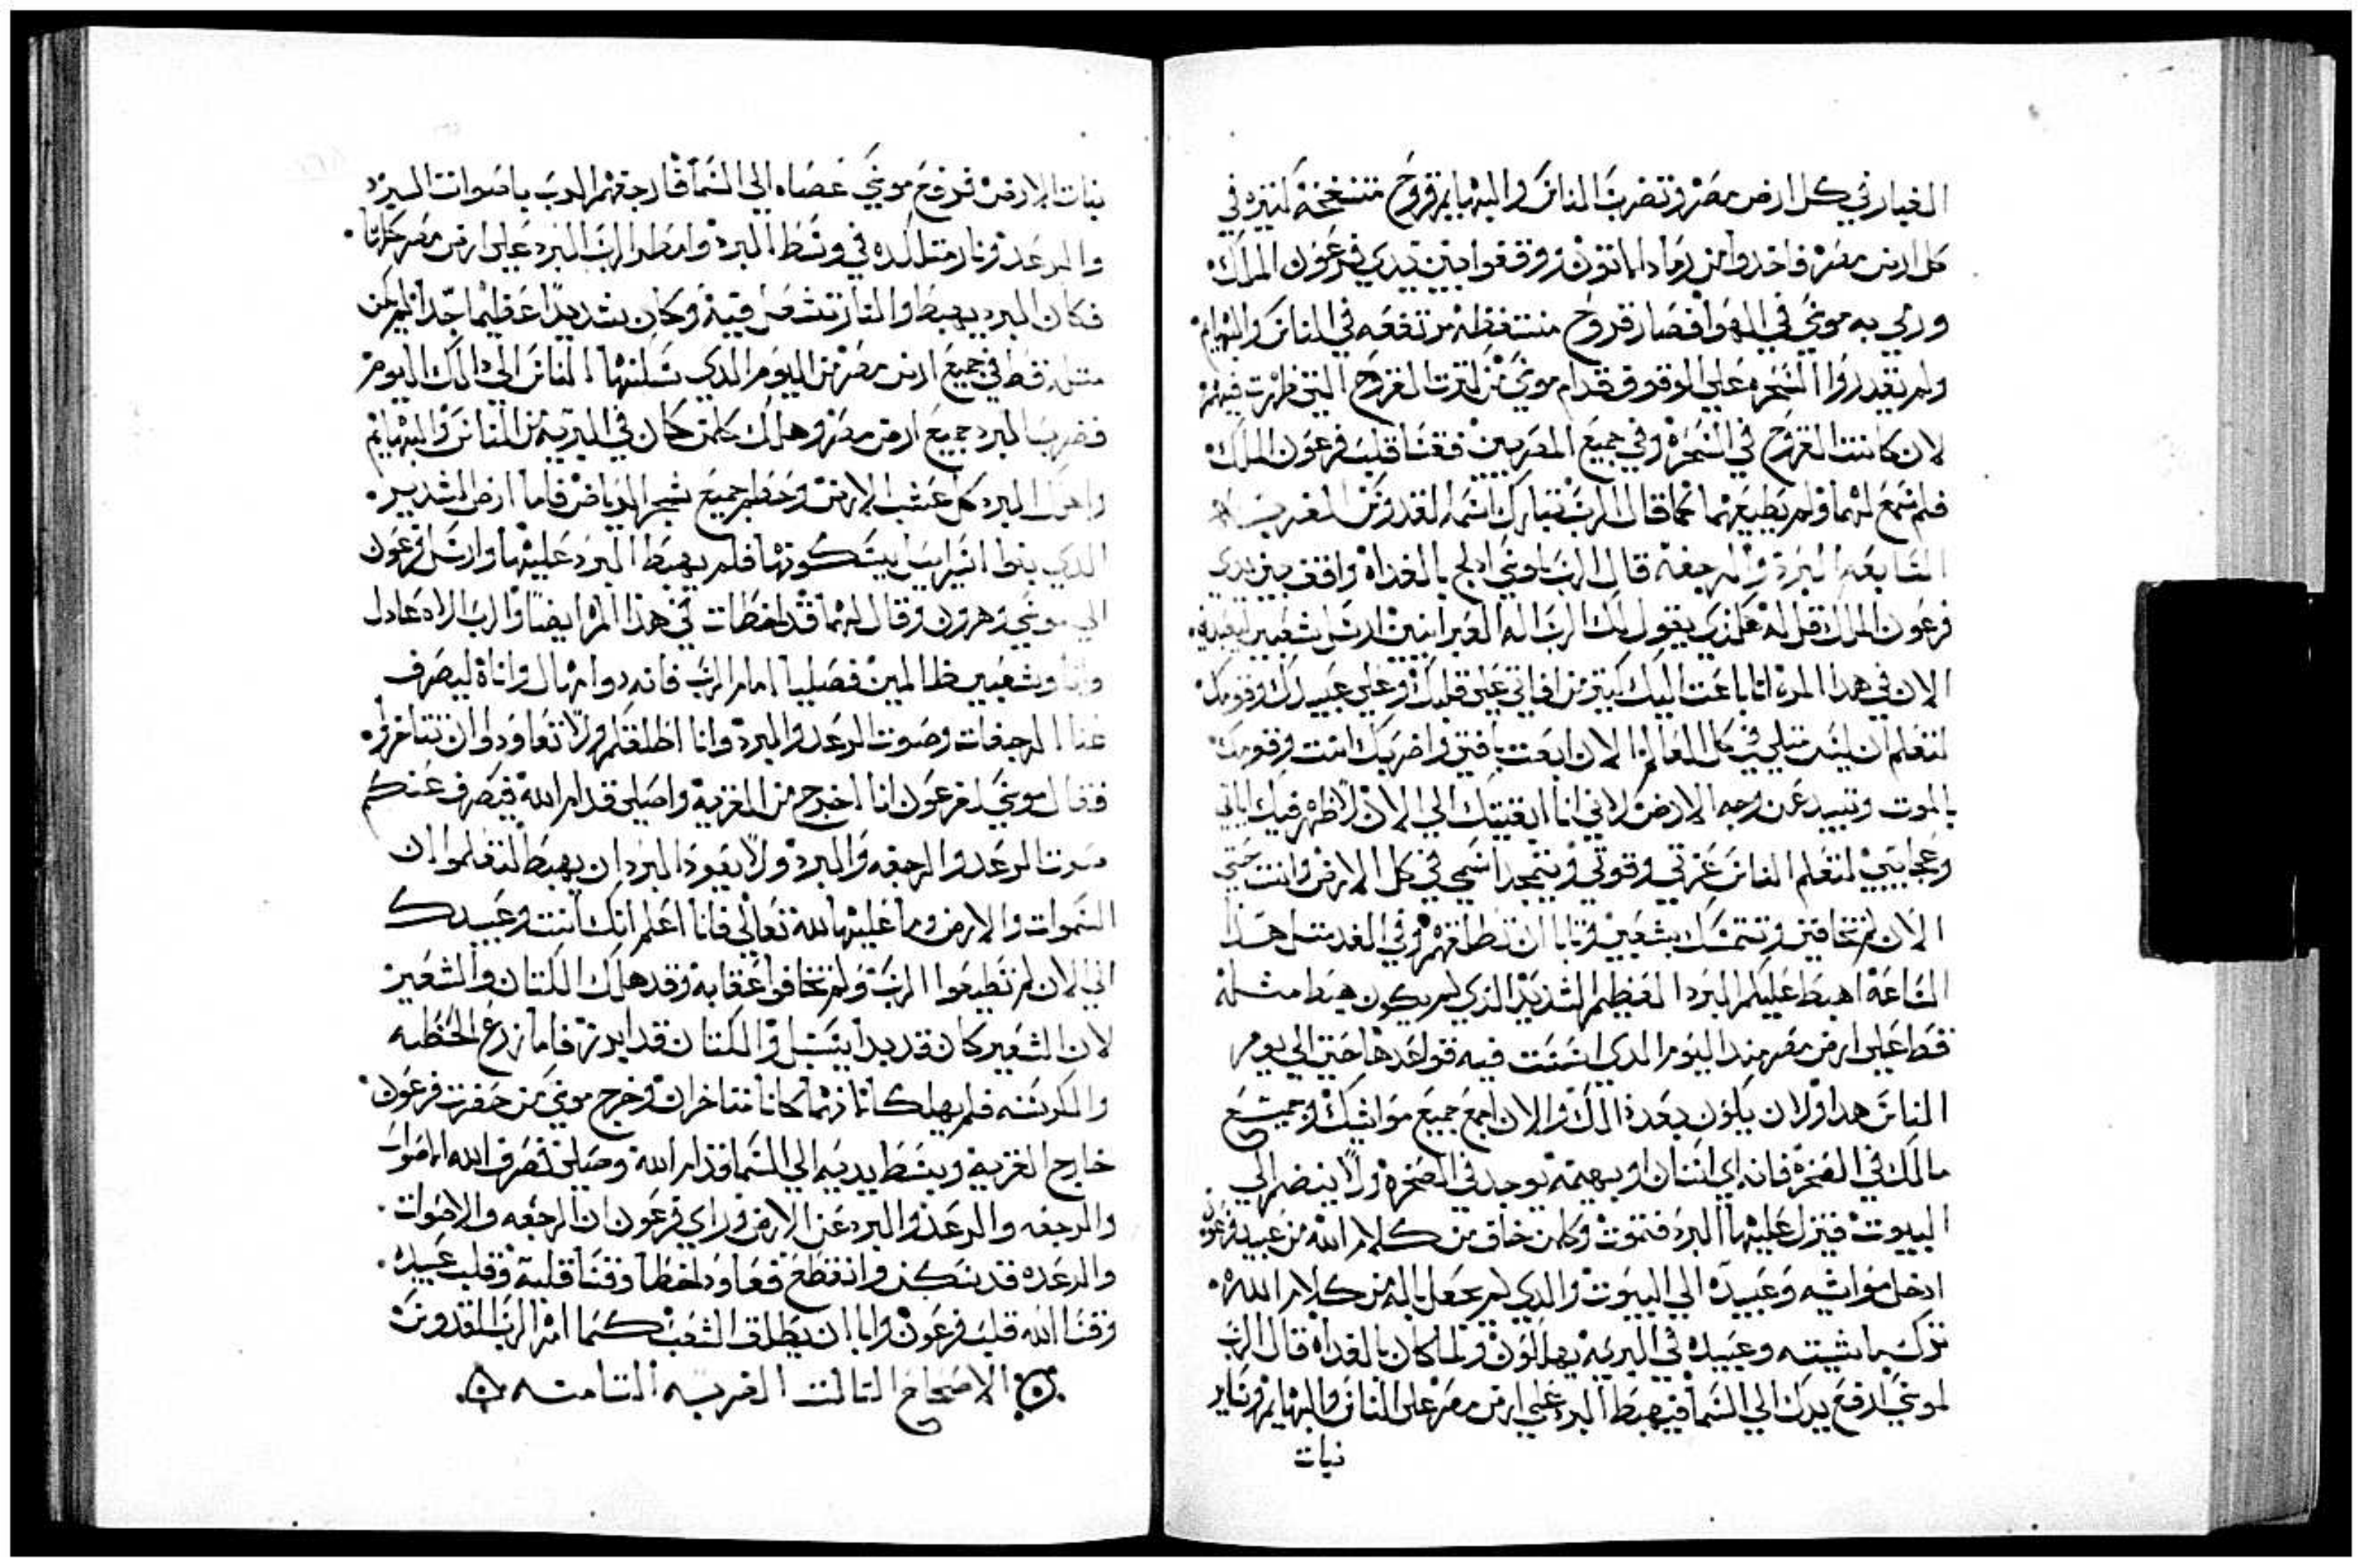 الغبار في كل ارض مصر وتضرب الناس والبهايم قروح متنفخه كتيره في
كل ارض مصر فاخدوا من رماد الاتون ووقفوا بين يدي فرعون الملك
ورمي به موسي في الهوا فصار قروح منتفظه مرتفعه في الناس والبهايم
ولم تقدروا السحره علي الوقوف قدام موسي من كترت القروح التي ظهرت فيهم
لان كانت القروح في السحره وفي جميع المصريين فقسا قلب فرعون الملك
فلم يسمع لهما ولم يطيعهما كما قال الرب تبارك اسمه القدوس الضربه
السابعه البرد والرجفه قال الرب لموسي ادلج بالغداه واقف بين يدي
فرعون الملك قل له هكذي يقول لك الرب اله العبرانيين ارسل شعبي ليعبدني
الان في هذا المره انا باعت اليك كتير من افاتي علي قلبك وعلي عبيدك وقومك
لتعلم ان ليس متلي في كل العالم الان ابعت بافتي واضربك انت وقومك
بالموت وتبيد عن وجه الارض لاني انا ابقيتك الي الان لاظهر فيك اياتي
وعجايبي لتعلم الناس عزتي وقوتي ويتمجد اسمي في كل الارض وانت حتي
الان لم تخافني وتتمسك بشعبي وتابا ان تطلقهم وفي الغد متل هدا
الساعه اهبط عليكم البرد العظيم الشديد الذي لم يكون هبط مثله
قط علي ارض مصر مند اليوم الدي اسست فيه قواعدها حتي الي يوم
الناس هدا ولان يكون بعد ذالك والان اجمع جميع مواشيك وجميع
مالك في الصحره فانه اي انسان او بهيمه توجد في الصحره ولا ينضم الي
البيوت فينزل عليها البرد فتموت وكلمن خاف من كلام الله من عبيد فرعون
ادخل مواشيه وعبيده الي البيوت والدي لم يجعل باله من كلام الله
ترك ماشيته وعبيده في البريه يهلكون ولما كان بالغداه قال الرب
لموسي ارفع يدك الي السما فيهبط البرد علي ارض مصر علي الناس والبهايم وساير
نبات
نبات الارض فرفع موسي عصاه الي السما فارجفهم الرب باصوات البرد
والرعد ونار متلكده في وسط البرد وامطر الرب البرد علي ارض مصر كلها
فكان البرد يهبط والنار تشعل فيه وكان شديدا عظيما جدا لم يكن
متله قط في جميع ارض مصر من اليوم الدي سكنها الناس الي دالك اليوم
فضرب البرد جميع ارض مصر وهلك كلمن كان في البريه من الناس والبهايم
واهلك البرد كل عشب الارض وحطم جميع شجر الرياض فاما ارض السدير
الدي بنوا اسراييل يسكونها فلم يهبط البرد عليها وارسل فرعون
الي موسي وهرون وقال لهما قد اخطات في هذا المره ايضا والرب الاه عادل
وانا وشعبي ظالمين فصليا امام الرب فانه دوامهال واناة ليصرف
عنا الرجفات وصوت الرعد والبرد وانا اطلقكم ولا تعاودوا ان تتاخروا
فقال موسي لفرعون انا اخرج من القريه واصلي قدام الله فيصرف عنكم
صوت الرعد والرجفه والبرد ولا يعود البرد ان يهبط لتعلموا ان
السموات والارض وما عليها لله تعالي فانا اعلم انك انت وعبيدك
الي الان لم تطيعوا الرب ولم تخافوا عقابه وقد هلك الكتان والشعير
لان الشعير كان قد بدا يسبل والكتان قد ابرز فاما زرع الحنطه
والكرسنه فلم يهلكا لانهما كانا متاخران وخرج موسي من حضرت فرعون
خارج القريه وبسط يديه الي السما قدام الله وصلي فصرف الله الاصوات
والرجفه والرعد والبرد عن الارض وراي فرعون ان الرجفه والاصوات
والرعده قد سكن وانقطع فعاود اخطا وقسا قلبه وقلب عبيده
وقسا الله قلب فرعون وابا ان يطلق الشعب كما امر الرب القدوس
الاصحاح التالت الضربه التامنه